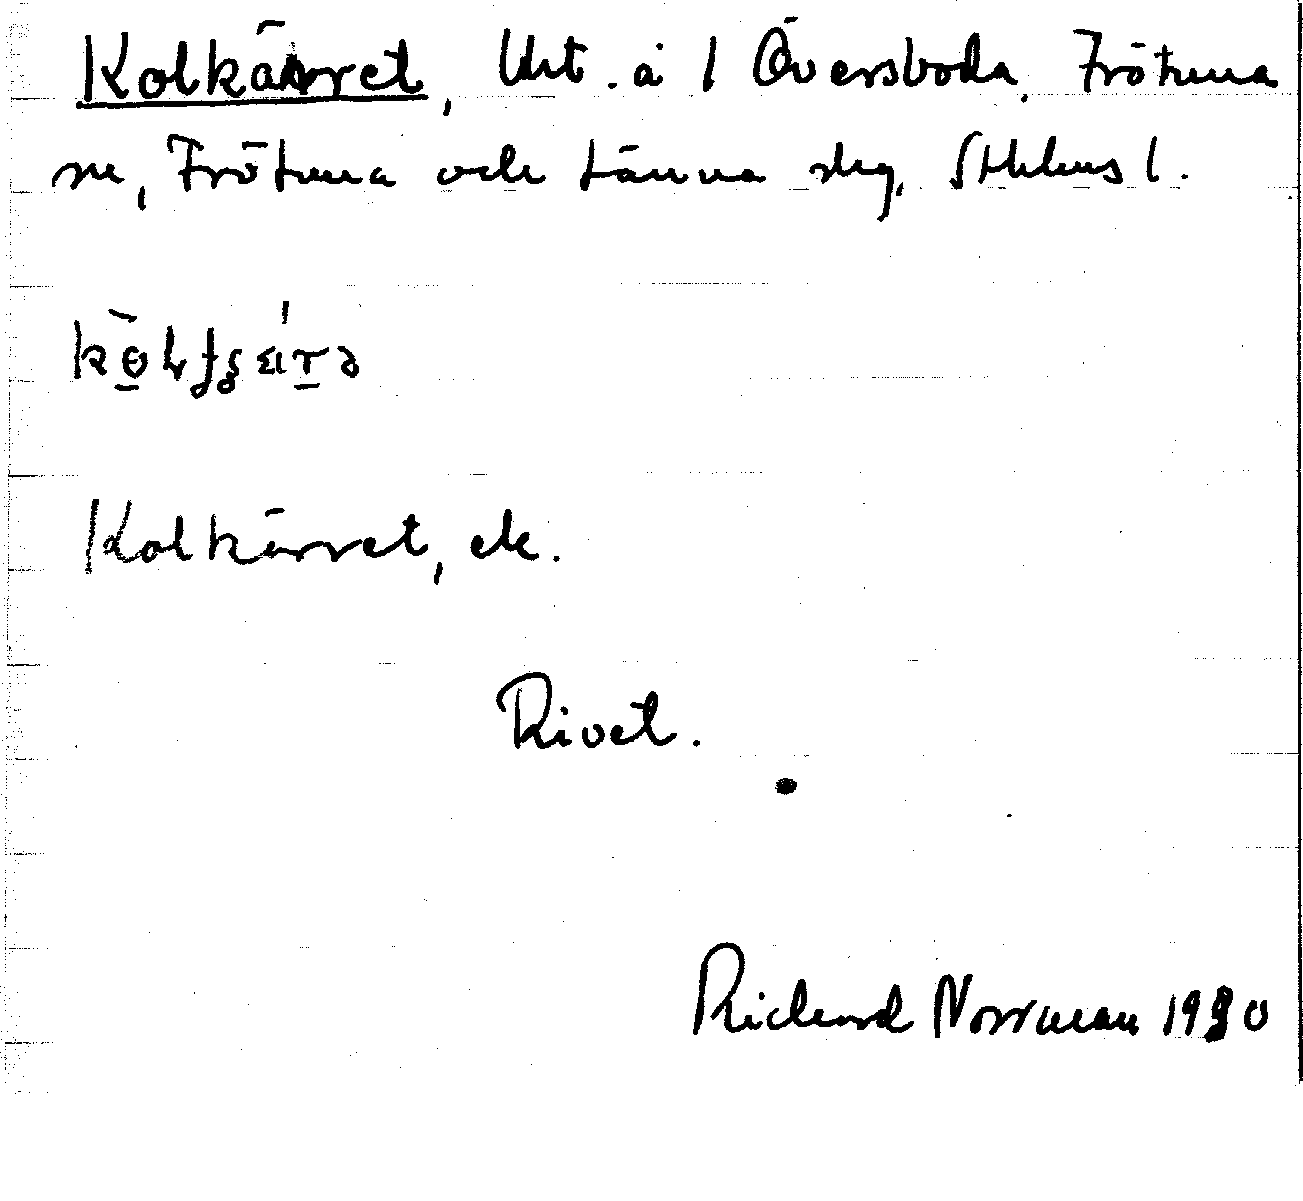 Kolkärret, Urt. å 1 Översboda, Frötuna
sn, Frötuna och Länna skg, Sthlms l.
Kolkärret, ek.
Rivet.
Richard Norrman 1930